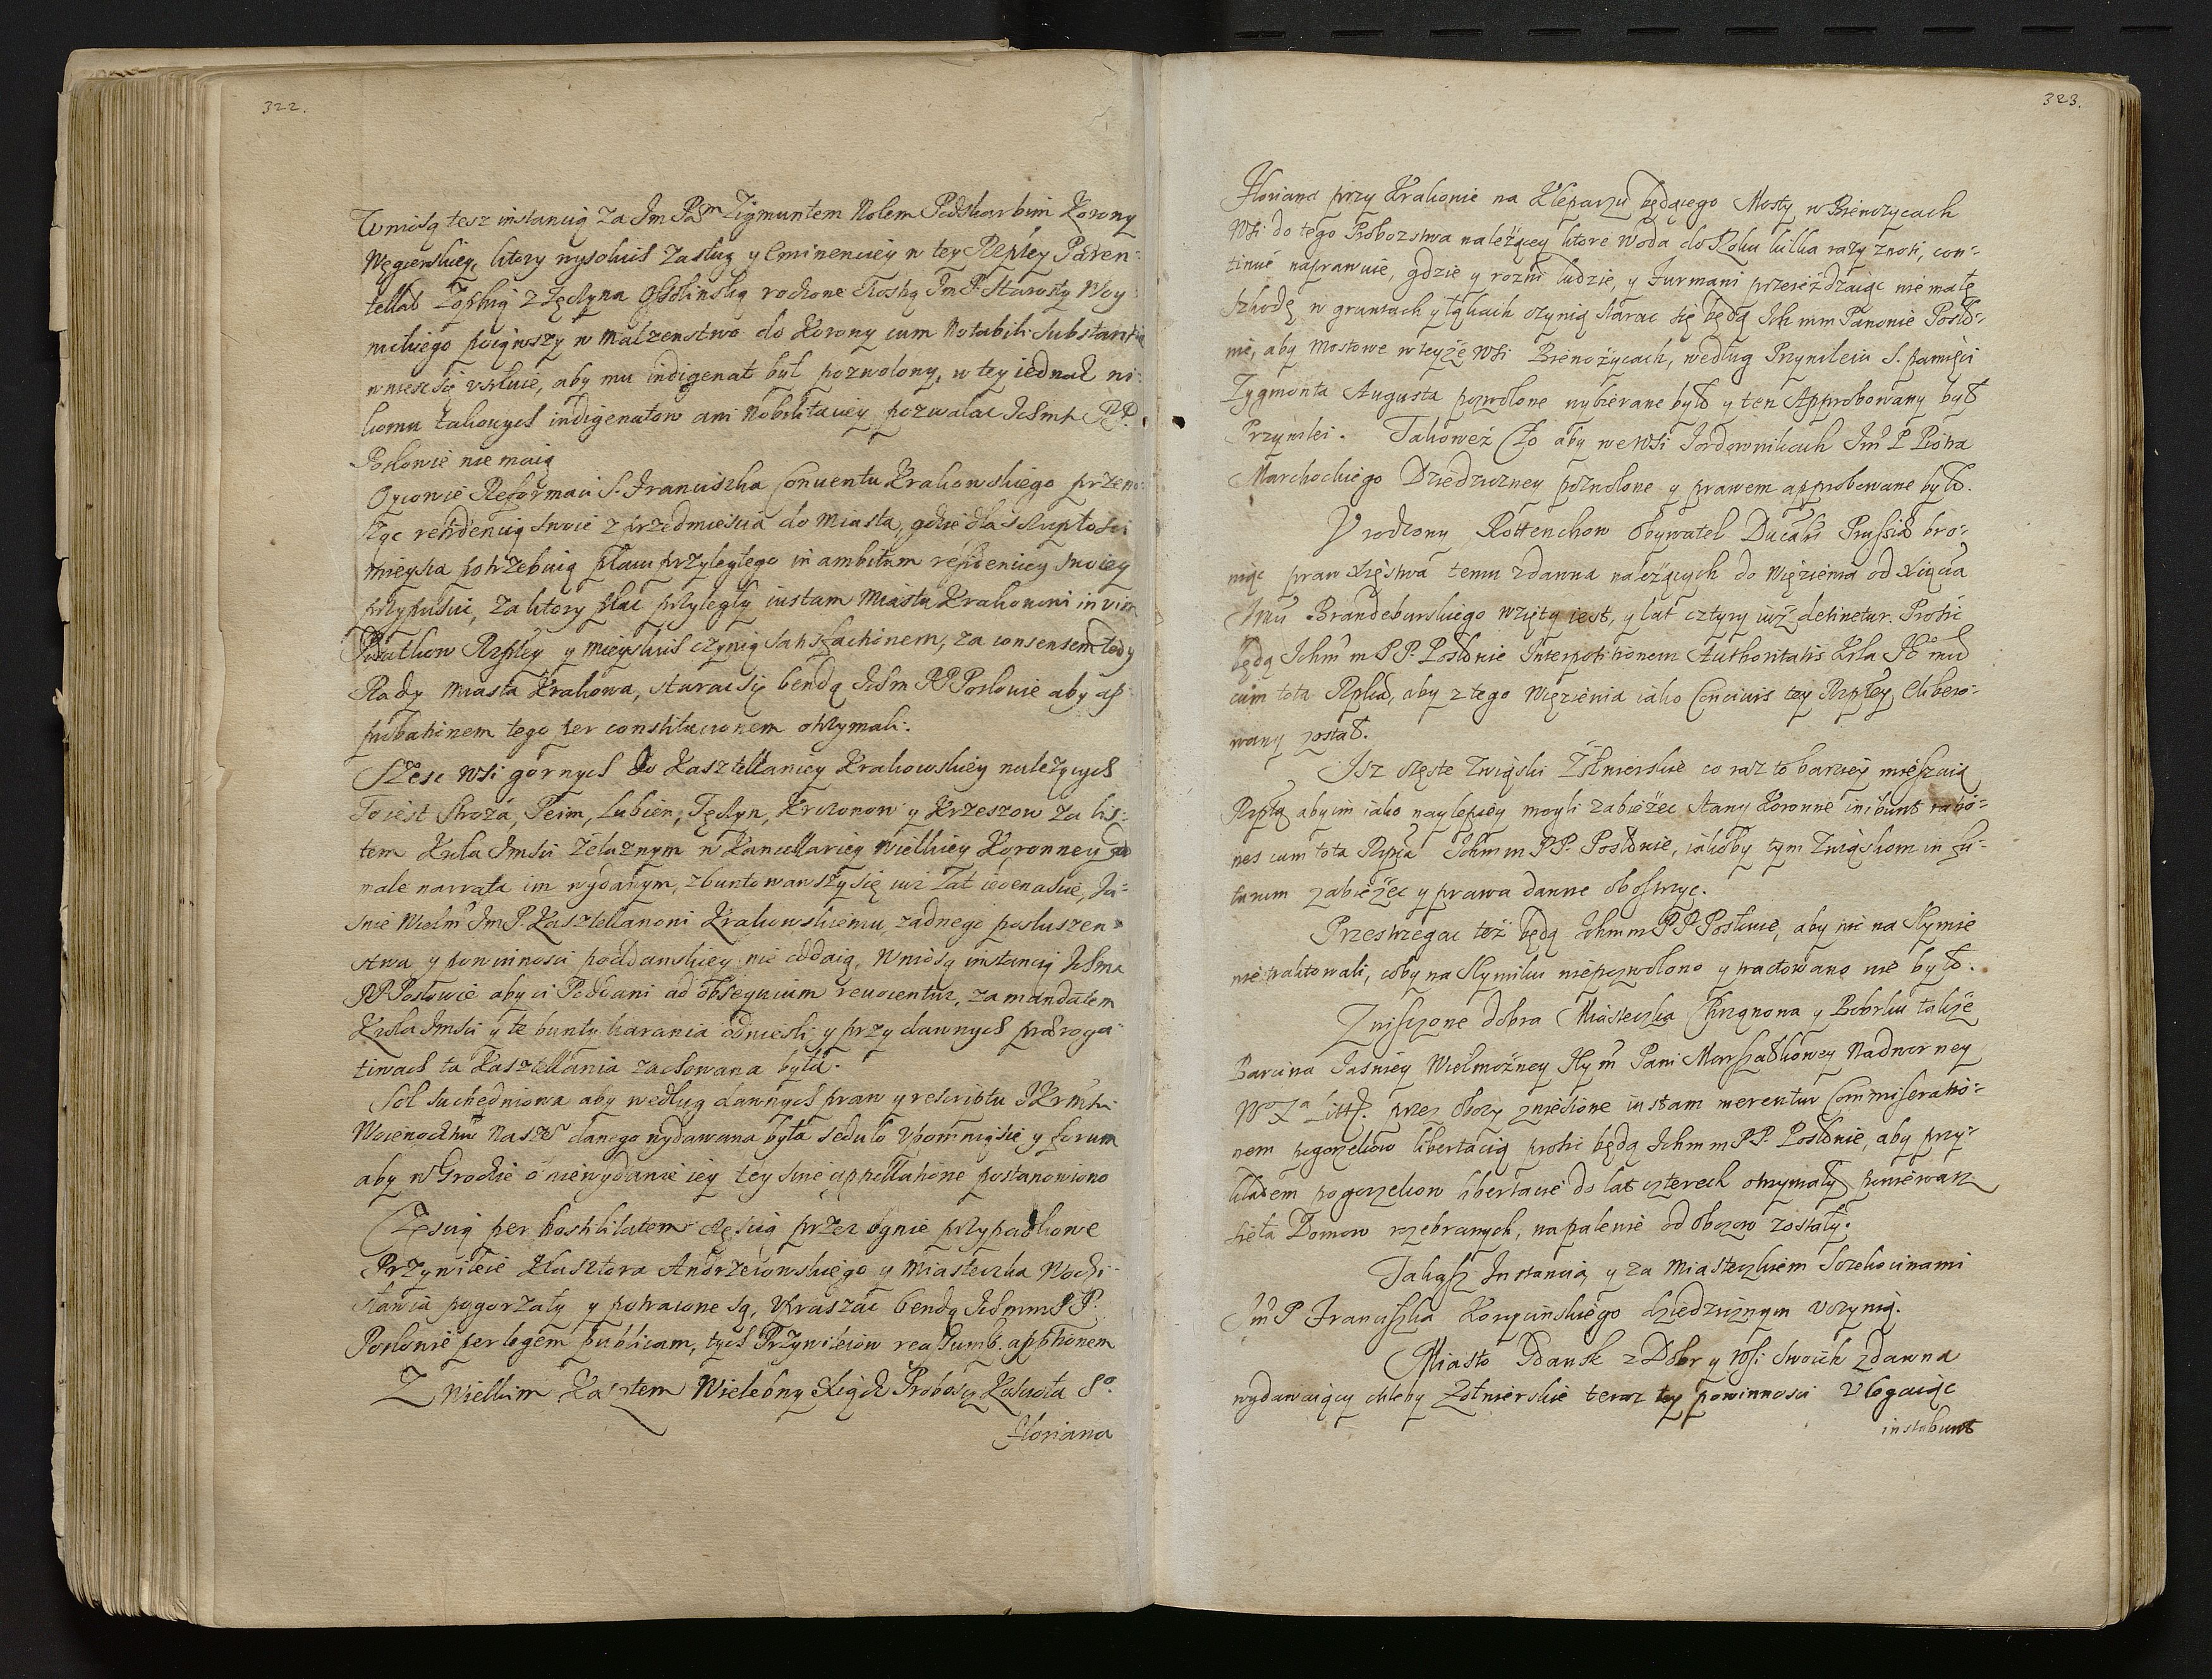 322.
Wniosą tesz instancią za Im Pₐₙᵐ Zigmuntem Holem Podskarbim Korony
Węgierskiey, ktory wysokich zasług y Eminenciey w tey Rzpltey Paren-
tellas Zophią z Tęczyna Ossolinską rodzone Ciostrą Im P. Starosty Woy
nickiego poiąwszy w malzenstwo do Korony cum Notabili Substantia
wniesc się usiłuie, aby mu indigenat był pozwolony, w tey iednak ni-
komu takowych indigenatow ani Nobilitaciey pozwalac Ichmć PP.
Posłowie nie maią
Oycowie Reformaci S. Franciszka Conventu Krakowskiego przeno-
sząc residencią swoie z przedmiescia do Miasta, gdzie dla szczupłosci
mieysca potrzebuią placu przyległego in ambitum residenciey swoiey
przypuscic, za ktory plac przyległy iustam Miastu Krakowowi in vim
Podatkow Rzpltey y mieyskich czynią satisfactionem, za consensem tedy
Rady Miasta Krakowa, starac się bendą Ichm PP Posłowie aby ap-
probationem tego per constitucionem otrzymali.
Szesc Wsi gornych do Kasztellaniey Krakowskiey należących
To iest Stroża, Pcim, Lubien, Tęczyn, Krzczonow y Krzeszow za lis-
tem Krola Imsci żelaznym w Kancellariey wielkiey Koronney ad
male narrata im wydanym, zbuntowawszy się iuż Lat iedenascie, Ia-
snie Wielm Im P. Kasztellanowi Krakowskiemu, żadnego posłuszen-
stwa y powinnosci poddanskiey nie oddaią, wniosą instancią Ichmc
PP Posłowie aby ci Poddani ad obsequium revocentur, za mandatem
Krola Imsci y te bunty karania odniesli y przy dawnych preroga-
tiwach ta Kasztellania zachowana była.
Sol suchedniowa aby według dawnych praw y rescriptu JKrMsci
Woiewodztwu Nasze danego wydawana była sedulo upomnią się y forum
aby w Grodzie o niewydanie iey tey sine appellatione postanowiono
Częscią per hostilitatem częscią przez ognie przypadkowe
Przywileie Klasztora Andrzeiowskiego y Miasteczka Wodzi-
sławia pogorzały y potracone są, Upraszac bendą Ichmm PP.
Posłowie per legem publicam, tych Przywileiow reassumpt. apptionem
Z Wielkim Kosztem Wielebny Xiądz Proboscz Koscioła Sᵒ
Floriana
323.
Floriana przy Krakowie na Kleparzu będącego Mosty w Bienczycach
Wsi do tego Probozstwa należącey ktore woda do Roku kilka razy znosi, con-
tinuè naprawuie, gdzie y rozni ludzie, y Furmani przeieżdzaiąc nie małe
szkodę w gruntach y łąkach czynią starac się będą Ich mm Panowie Posło-
wie, aby mostowe w teyże Wsi Bienczycach, według Przywileiu S. pamięci
Zygmonta Augusta pozwolone wybierane było y ten Approbowany był
Przywilei. Takoweż Cło aby we Wsi Iordownikach Im P Piotra
Marchockiego Dziedziczney pozwolone y prawem approbowane było.
Urodzony Rottenchow Obywatel Ducalis Prussiæ bro-
niąc praw Xięstwa temu zdawna należących do więzienia od Xiącia
Imci Brandeburskiego wzięty iest, y lat cztyry iuż detinetur. Prosic
będą Ichm m PP. Posłowie Interpositionem Authoritatis Krla Jᵒ mci
cum tota Rzplica, aby z tego więzienia iako Concivis tey Rzpltey eliberо-
wany został.
Isz częste Związki Żołnierskie co raz to barziey mieszaią
Rzptą aby im iako naylepiey mogli zabieżec Stany Koronne inibunt ratio-
nes cum tota Rzpca Ichm m PP. Posłowie, iakoby tym Związkom in fu-
turum zabieżec y prawa danne obostrzyc.
Przestrzegac też będą Ichm m PP Posłowie, aby nic na Seymie
nie traktowali, coby na Seymiku niepozwolono y tractowano nie było.
Zniszczone dobra Miasteczka Chrzanowa y Bobrku także
Barcina Iasniey Wielmożney Iey m Pani Marszałkowey Nadworney
Wᵒ Xᵃ Litt. przez obozy zniesione iustam merentur Commiseratio-
nem pogorzelcow libertacią prosic będą Ichm m PP. Posłowie, aby przy-
kładem pogorzelcow libertacie do lat czterech otrzymały ponieważ
sieła Domow rozebranych, na palenie od obozow zostały.
Takąsz Instancią y za Miasteczkiem Szczekocinami
Im P Franciszka Korycinskiego dziedzicznym uczynią.
Miasto Gdansk z Dobr y Wsi swoich zdawna
wydawaiący chleby Żołnierskie teraz tey powinnosci ulegaiąc
instabunt